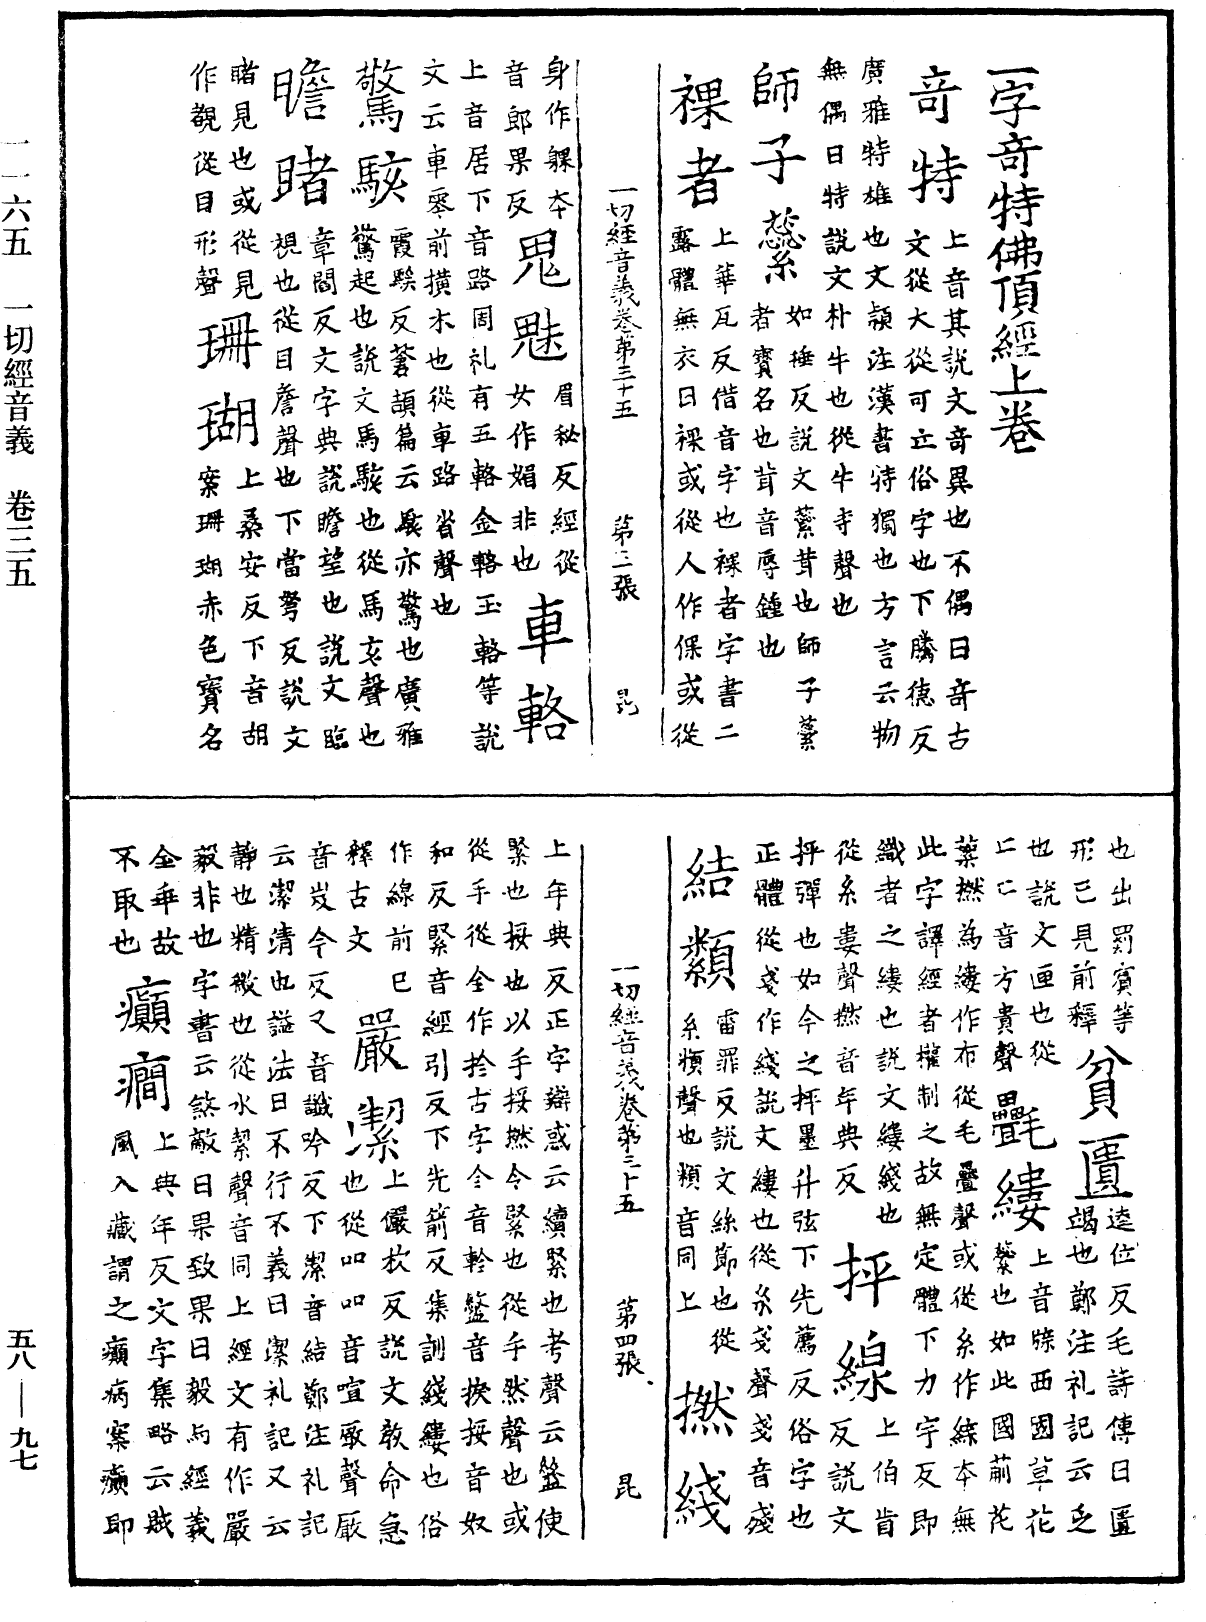 一字奇特佛頂經上卷
奇特上音其說文奇異也不偶曰奇古
文從大從可立俗字也下騰德反
廣雅特雄也文穎注漢書特獨也方言云物
無偶曰特說文朴牛也從牛寺聲也
師子蘂如捶反說文蘂茸也師子蘂
者寶名也茸音辱鍾也
裸者上華瓦反借音字也裸者字書二
露體無衣曰裸或從人作倮或從
一切經音義卷第三十五 第三張 昆
身作躶本
音郎果反鬼魅眉秘反經從
女作媚非也車輅
上音居下音路周礼有五輅金輅玉輅等說
文云車軨前橫木也從車路省聲也
驚駭霞騃反蒼頡篇云駭亦驚也廣雅
驚起也說文馬駭也從馬亥聲也
瞻睹章閻反文字典說瞻望也說文臨
視也從目詹聲也下當弩反說文
睹見也或從見
作覩從目形聲珊瑚上桑安反下音胡
案珊瑚赤色寶名
也出罽賓等
形已見前釋貧匱逵位反毛詩傳曰匱
竭也鄭注礼記云乏
也說文匣也從
匚匚音方貴聲㲲縷上音牒西國草花
蘂也如此國葪花
蘂撚為縷作布從毛疊聲或從糸作緤本無
此字譯經者權制之故無定體下力宇反即
織者之縷也說文縷綫也
從糸婁聲撚音年典反抨線上伯肯
反說文
抨彈也如今之抨墨斗弦下先薦反俗字也
正體從戔作綫說文縷也從糸戔聲戔音殘
結纇雷罪反說文絲節也從
糸頪聲也頪音同上撚綫
一切經音義卷第三十五 第四張 昆
上年典反正字辯惑云續緊也考聲云盭使
緊也挼也以手挼撚令緊也從手然聲也或
從手從全作拴古字全音軨盭音捩挼音奴
和反緊音經引反下先箭反集訓綫縷也俗
作線前已
釋古文嚴潔上儼杴反說文教命急
也從吅吅音喧厰聲厰
音㞦今反又音讖吟反下潔音結鄭注礼記
云潔清也謚法曰不行不義曰潔礼記又云
靜也精微也從水絜聲音同上經文有作嚴
毅非也字書云煞敵曰果致果曰毅与經義
全乖故
不取也癲癎上典年反文字集略云賊
風入藏謂之癲病案癲即
一一六五 一切經音義 卷三五
五八—九七